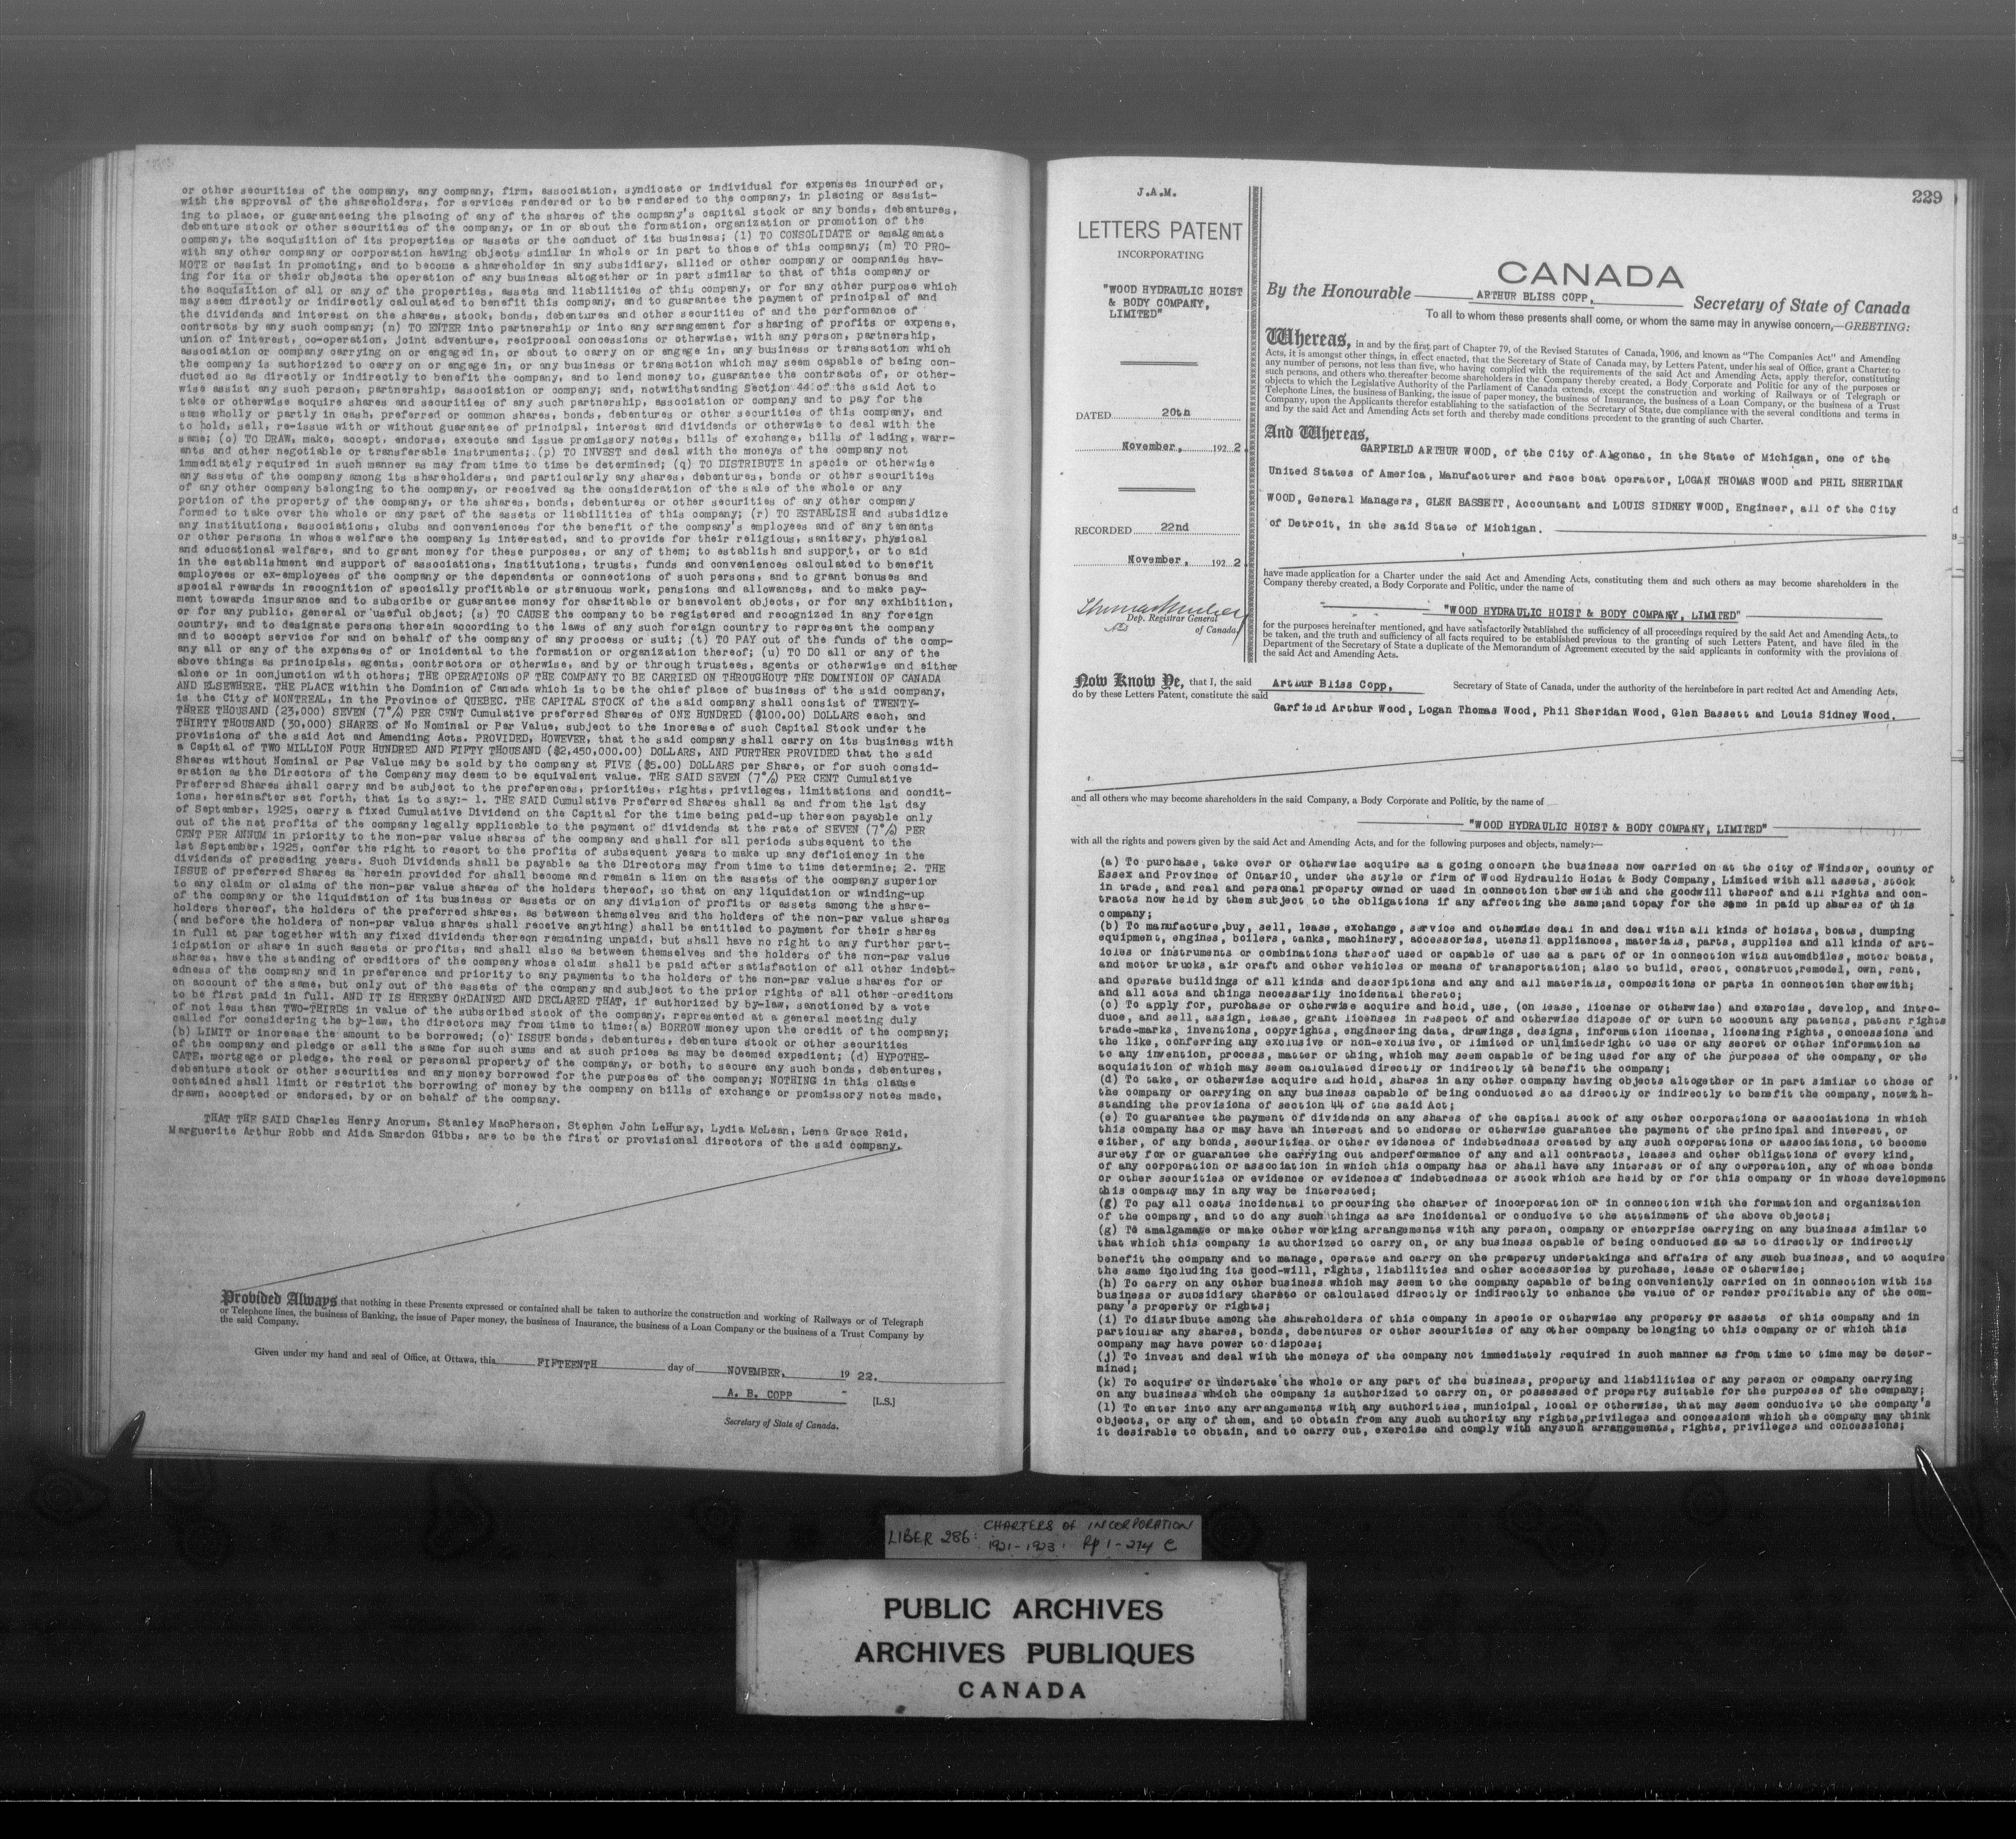 or other securities of the company, any company, firm, association, syndicate or individual for expenses incurred or,
with the approval of the shareholders, for services rendered or to be rendered to the company, in placing or assist-
ing to place, or guaranteeing the placing of any of the shares of the company's capital stock or any bonds, debentures,
debenture stock or other securities of the company, or in or about the formation, organization or promotion of the
company, the acquisition of its properties or assets or the conduct of its business; (l) TO CONSOLIDATE or amalgamate
with any other company or corporation having objects similar in whole or in part to those of this company; (m) TO PRO-
MOTE or assist in promoting, and to become a shareholder in any subsidiary, allied or other company or companies hav-
ing for its or their objects the operation of any business altogether or in part similar to that of this company or
the acquisition of all or any of the properties, assets and liabilities of this company, or for any other purpose which
may seem directly or indirectly calculated to benefit this company, and to guarantee the payment of principal of and
the dividends and interest on the shares, stock, bonds, debentures and other securities of and the performance of
contracts by any such company; (n) TO ENTER into partnership or into any arrangement for sharing of profits or expense,
union of interest, co-operation, joint adventure, reciprocal concessions or otherwise, with any person, partnership,
association or company carrying on or engaged in, or about to carry on or engage in, any business or transaction which
the company is authorized to carry on or engage in, or any business or transaction which may seem capable of being con-
ducted so as directly or indirectly to benefit the company, and to lend money to, guarantee the contracts of, or other-
wise assist any such person, partnership, association or company; and, notwithstanding Section 44 of the said Act to
take or otherwise acquire shares and securities of any such partnership, association or company and to pay for the
same wholly or partly in cash, preferred or common shares, bonds, debentures or other securities of this company, and
to hold, sell, re-issue with or without guarantee of principal, interest and dividends or otherwise to deal with the
same; (o) TO DRAW, make, accept, endorse, execute and issue promissory notes, bills of exchange, bills of lading, warr-
ants and other negotiable or transferable instruments; (p) TO INVEST and deal with the moneys of the company not
immediately required in such manner as may from time to time be determined; (q) TO DISTRIBUTE in specie or otherwise
any assets of the company among its shareholders, and particularly any shares, debentures, bonds or other securities
of any other company belonging to the company, or received as the consideration of the sale of the whole or any
portion of the property of the company, or the shares, bonds, debentures or other securities of any other company
formed to take over the whole or any part of the assets or liabilities of this company; (r) TO ESTABLISH and subsidize
any institutions, associations, clubs and conveniences for the benefit of the company's employees and of any tenants
or other persons in whose welfare the company is interested, and to provide for their religious, sanitary, physical
and educational welfare, and to grant money for these purposes, or any of them; to establish and support, or to aid
in the establishment and support of associations, institutions, trusts, funds and conveniences calculated to benefit
employees or ex-employees of the company or the dependents or connections of such persons, and to grant bonuses and
special rewards in recognition of specially profitable or strenuous work, pensions and allowances, and to make pay-
ment towards insurance and to subscribe or guarantee money for charitable or benevolent objects, or for any exhibition,
or for any public, general or useful object; (s) TO CAUSE the company to be registered and recognized in any foreign
country, and to designate persons therein according to the laws of any such foreign country to represent the company
and to accept service for and on behalf of the company of any process or suit; (t) TO PAY out of the funds of the comp-
any all or any of the expenses of or incidental to the formation or organization thereof; (u) TO DO all or any of the
above things as principals, agents, contractors or otherwise, and by or through trustees, agents or otherwise and either
alone or in conjunction with others; THE OPERATIONS OF THE COMPANY TO BE CARRIED ON THROUGHOUT THE DOMINION OF CANADA
AND ELSEWHERE. THE PLACE within the Dominion of Canada which is to be the chief place of business of the said company,
is the City of MONTREAL, in the Province of QUEBEC. THE CAPITAL STOCK of the said company shall consist of TWENTY-
THREE THOUSAND (23,000) SEVEN (7%) PER CENT Cumulative preferred Shares of ONE HUNDRED ($100.00) DOLLARS each, and
THIRTY THOUSAND (30,000) SHARES of No Nominal or Par Value, subject to the increase of such Capital Stock under the
provisions of the said Act and Amending Acts. PROVIDED, HOWEVER, that the said company shall carry on its business with
a Capital of TWO MILLION FOUR HUNDRED AND FIFTY THOUSAND ($2,450,000.00) DOLLARS, AND FURTHER PROVIDED that the said
Shares without Nominal or Par Value may be sold by the company at FIVE ($5.00) DOLLARS per Share, or for such consid-
eration as the Directors of the Company may deem to be equivalent value. THE SAID SEVEN (7%) PER CENT Cumulative
Preferred Shares shall carry and be subject to the preferences, priorities, rights, privileges, limitations and condit-
ions, hereinafter set forth, that is to say:- 1. THE SAID Cumulative Preferred Shares shall as and from the 1st day
of September, 1925, carry a fixed Cumulative Dividend on the Capital for the time being paid-up thereon payable only
out of the net profits of the company legally applicable to the payment of dividends at the rate of SEVEN (7%) PER
CENT PER ANNUM in priority to the non-par value shares of the company and shall for all periods subsequent to the
1st September, 1925, confer the right to resort to the profits of subsequent years to make up any deficiency in the
dividends of preceding years. Such Dividends shall be payable as the Directors may from time to time determine; 2. THE
ISSUE of preferred Shares as herein provided for shall become and remain a lien on the assets of the company superior
to any claim or claims of the non-par value shares of the holders thereof, so that on any liquidation or winding-up
of the company or the liquidation of its business or assets or on any division of profits or assets among the share-
holders thereof, the holders of the preferred shares, as between themselves and the holders of the non-par value shares
(and before the holders of non-par value shares shall receive anything) shall be entitled to payment for their shares
in full at par together with any fixed dividends thereon remaining unpaid, but shall have no right to any further part-
icipation or share in such assets or profits, and shall also as between themselves and the holders of the non-par value
shares, have the standing of creditors of the company whose claim shall be paid after satisfaction of all other indebt-
edness of the company and in preference and priority to any payments to the holders of the non-par value shares for or
on account of the same, but only out of the assets of the company and subject to the prior rights of all other creditors
to be first paid in full. AND IT IS HEREBY ORDAINED AND DECLARED THAT, if authorized by by-law, sanctioned by a vote
of not less than TWO-THIRDS in value of the subscribed stock of the company, represented at a general meeting duly
called for considering the by-law, the directors may from time to time:(a) BORROW money upon the credit of the company;
(b) LIMIT or increase the amount to be borrowed; (c) ISSUE bonds, debentures, debenture stock or other securities
of the company and pledge or sell the same for such sums and at such prices as may be deemed expedient; (d) HYPOTHE-
CATE, mortgage or pledge, the real or personal property of the company, or both, to secure any such bonds, debentures,
debenture stock or other securities and any money borrowed for the purposes of the company; NOTHING in this clause
contained shall limit or restrict the borrowing of money by the company on bills of exchange or promissory notes made,
drawn, accepted or endorsed, by or on behalf of the company.
THAT THE SAID Charles Henry Ancrum, Stanley MacPherson, Stephen John LeHuray, Lydia McLean, Lena Grace Reid,
Marguerite Arthur Robb and Aida Smardon Gibbs, are to be the first or provisional directors of the said company.
Provided Always that nothing in these Presents expressed or contained shall be taken to authorize the construction and working of Railways or of Telegraph
or Telephone lines, the business of Banking, the issue of Paper money, the business of Insurance, the business of a Loan Company or the business of a Trust Company by
the said Company.
Given under my hand and seal of Office, at Ottawa, this FIFTEENTH day of NOVEMBER, 19 22.
A. B. COPP [L.S.]
Secretary of State of Canada.
229
J.A.M.
LETTERS PATENT
INCORPORATING
"WOOD HYDRAULIC HOIST
& BODY COMPANY,
LIMITED"
DATED 20th
November, 192 2
RECORDED 22nd
November, 192 2
Dep. Registrar General
of Canada
CANADA
By the Honourable ARTHUR BLISS COPP, Secretary of State of Canada
To all to whom these presents shall come, or whom the same may in anywise concern,—GREETING:
Whereas, in and by the first part of Chapter 79, of the Revised Statutes of Canada, 1906, and known as "The Companies Act" and Amending
Acts, it is amongst other things, in effect enacted, that the Secretary of State may, by Letters Patent, under his seal of Office, grant a Charter to
any number of persons, not less than five, who having complied with the requirements of the said Act and Amending Acts, apply therefor, constituting
such persons, and others who thereafter become shareholders in the Company thereby created, a Body Corporate and Politic for any of the purposes or
objects to which the Legislative Authority of the Parliament of Canada extends, except the construction and working of Railways or of Telegraph or
Telephone Lines, the business of Banking, the issue of paper money, the business of Insurance, the business of a Loan Company, or the business of a Trust
Company, upon the Applicants therefor establishing to the satisfaction of the Secretary of State, due compliance with the several conditions and terms in
and by the said Act and Amending Acts set forth and thereby made conditions precedent to the granting of such Charter.
And Whereas,
GARFIELD ARTHUR WOOD, of the City of Algonac, in the State of Michigan, one of the
United States of America, Manufacturer and race boat operator, LOGAN THOMAS WOOD and PHIL SHERIDAN
WOOD, General Managers, GLEN BASSETT, Accountant and LOUIS SIDNEY WOOD, Engineer, all of the City
of Detroit, in the said State of Michigan.
have made application for a Charter under the said Act and Amending Acts, constituting them and such others as may become shareholders in the
Company thereby created, a Body Corporate and Politic, under the name of
"WOOD HYDRAULIC HOIST & BODY COMPANY, LIMITED"
for the purposes hereinafter mentioned, and have satisfactorily established the sufficiency of all proceedings required by the said Act and Amending Acts, to
be taken, and the truth and sufficiency of all facts required to be established previous to the granting of such Letters Patent, and have filed in the
Department of the Secretary of State a duplicate of the Memorandum of Agreement executed by the said applicants in conformity with the provisions of
the said Act and Amending Acts.
Now Know Ye, that I, the said Arthur Bliss Copp, Secretary of State of Canada, under the authority of the hereinbefore in part recited Act and Amending Acts,
do by these Letters Patent, constitute the said
Garfield Arthur Wood, Logan Thomas Wood, Phil Sheridan Wood, Glen Bassett and Louis Sidney Wood.
and all others who may become shareholders in the said Company, a Body Corporate and Politic, by the name of
"WOOD HYDRAULIC HOIST & BODY COMPANY, LIMITED"
with all the rights and powers given by the said Act and Amending Acts, and for the following purposes and objects, namely:—
(a) To purchase, take over or otherwise acquire as a going concern the business now carried on at the city of Windsor, county of
Essex and Province of Ontario, under the style or firm of Wood Hydraulic Hoist & Body Company, Limited with all assets, stock
in trade, and real and personal property owned or used in connection therewith and the goodwill thereof and all rights and con-
tracts now held by them subject to the obligations if any affecting the same;and topay for the same in paid up shares of this
company;
(b) To manufacture,buy, sell, lease, exchange, service and othewise deal in and deal with all kinds of hoists, boats, dumping
equipment, engines, boilers, tanks, machinery, accessories, utensil appliances, materials, parts, supplies and all kinds of art-
icles or instruments or combinations thereof used or capable of use as a part of or in connection with automobiles, motor boats,
and motor trucks, air craft and other vehicles or means of transportation; also to build, erect, construct,remodel, own, rent,
and operate buildings of all kinds and descriptions and any and all materials, compositions or parts in connection therewith;
and all acts and things necessarily incidental thereto;
(c) To apply for, purchase or otherwise acquire and hold, use, (on lease, license or otherwise) and exercise, develop, and intro-
duce, and sell, assign, lease, grant licenses in respect of and otherwise dispose of or turn to account any patents, patent rights
trade-marks, inventions, copyrights, engineering data, drawings, designs, information license, licensing rights, concessions and
the like, conferring any exclusive or non-exclusive, or limited or unlimitedright to use or any secret or other information as
to any invention, process, matter or thing, which may seem capable of being used for any of the purposes of the company, or the
acquisition of which may seem calculated directly or indirectly to benefit the company;
(d) To take, or otherwise acquire and hold, shares in any other company having objects altogether or in part similar to those of
the company or carrying on any business capable of being conducted so as directly or indirectly to benefit the company, notwith-
standing the provisions of section 44 of the said Act;
(e) To guarantee the payment of dividends on any shares of the capital stock of any other corporations or associations in which
this company has or may have an interest and to endorse or otherwise guarantee the payment of the principal and interest, or
either, of any bonds, securities or other evidences of indebtedness created by any such corporations or associations, to become
surety for or guarantee the carrying out andperformance of any and all contracts, leases and other obligations of every kind,
of any corporation or association in which this company has or shall have any interest or of any corporation, any of whose bonds
or other securities or evidence or evidences of indebtedness or stock which are held by or for this company or in whose development
this company may in any way be interested;
(g) To pay all costs incidental to procuring the charter of incorporation or in connection with the formation and organization
of the company, and to do any such things as are incidental or conducive to the attainment of the above objects;
(g) To amalgamate or make other working arrangements with any person, company or enterprise carrying on any business similar to
that which this company is authorized to carry on, or any business capable of being conducted so as to directly or indirectly
benefit the company and to manage, operate and carry on the property undertakings and affairs of any such business, and to acquire
the same including its good-will, rights, liabilities and other accessories by purchase, lease or otherwise;
(h) To carry on any other business which may seem to the company capable of being conveniently carried on in connection with its
business or susidiary thereto or calculated directly or indirectly to enhance the value of or render profitable any of the com-
pany's property or rights;
(i) To distribute among the shareholders of this company in specie or otherwise any property or assets of this company and in
particular any shares, bonds, debentures or other securities of any other company belonging to this company or of which this
company may have power to dispose;
(j) To invest and deal with the moneys of the company not immediately required in such manner as from time to time may be deter-
mined;
(k) To acquire or undertake the whole or any part of the business, property and liabilities of any person or company carrying
on any business which the company is authorized to carry on, or possessed of property suitable for the purposes of the company;
(l) To enter into any arrangements with any authorities, municipal, local or otherwise, that may seem conducive to the company's
objects, or any of them, and to obtain from any such authority any rights,privileges and concessions which the company may think
it desirable to obtain, and to carry out, exercise and comply with anysuch arrangements, rights, privileges and concessions;
LIBER 286: CHARTERS OF INCORPORATION
1921-1923. Pp 1-274 C
PUBLIC ARCHIVES
ARCHIVES PUBLIQUES
CANADA